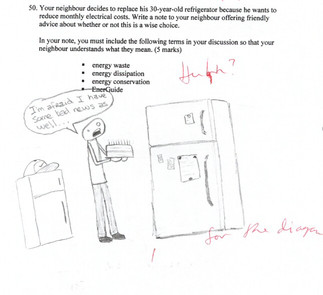 50. Your neighbour decides to replace his 30-year-old refrigerator because he wants to
reduce monthly electrical costs. Write a note to your neighbour offering friendly
advice about whether or not this is a wise choice.
In your note, you must include the following terms in your discussion so that your
neighbour understands what they mean. (5 marks)
• energy waste
• energy dissipation
• energy conservation
• EnerGuide
I'm afraid I have
some bad news as
well...
for the diagram
1